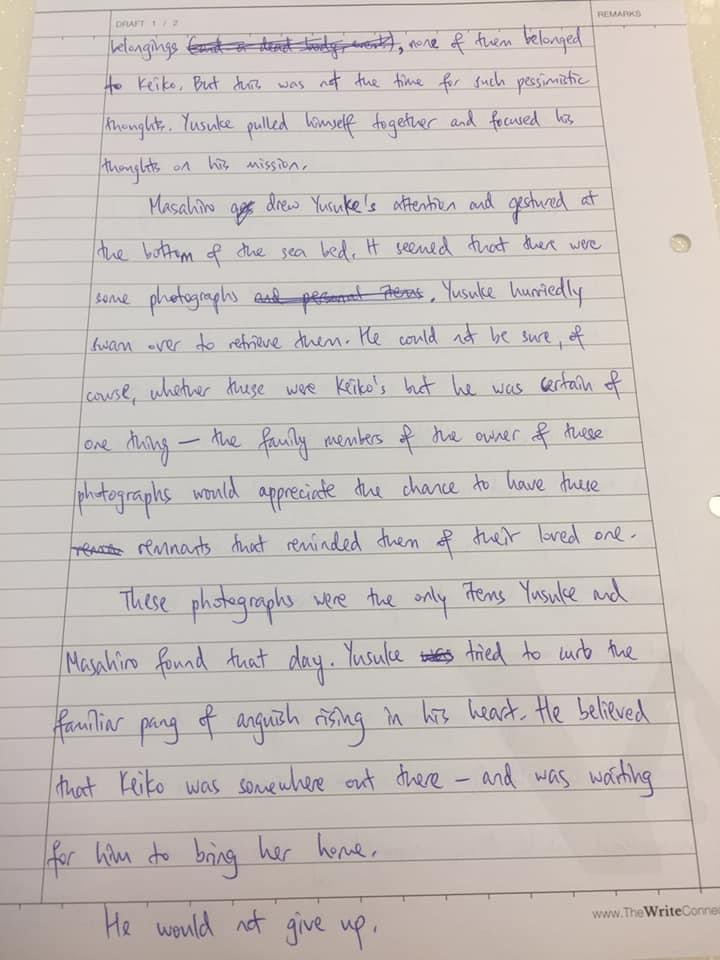 DRAFT 1 / 2
REMARKS
belongings (and a dead body, once), none of them belonged
to Keiko. But this was not the time for such pessimistic
thoughts. Yusuke pulled himself together and focused his
thoughts on his mission.
Masahiro drew Yusuke's attention and gestured at
the bottom of the sea bed. It seemed that there were
some photographs and personal items. Yusuke hurriedly
swam over to retrieve them. He could not be sure, of
course, whether these were Keiko's but he was certain of
one thing — the family members of the owner of these
photographs would appreciate the chance to have these
remnants that reminded them of their loved one.
These photographs were the only items Yusuke and
Masahiro found that day. Yusuke was tried to curb the
familiar pang of anguish rising in his heart. He believed
that Keiko was somewhere out there — and was waiting
for him to bring her home.
www.TheWriteConnec
He would not give up.